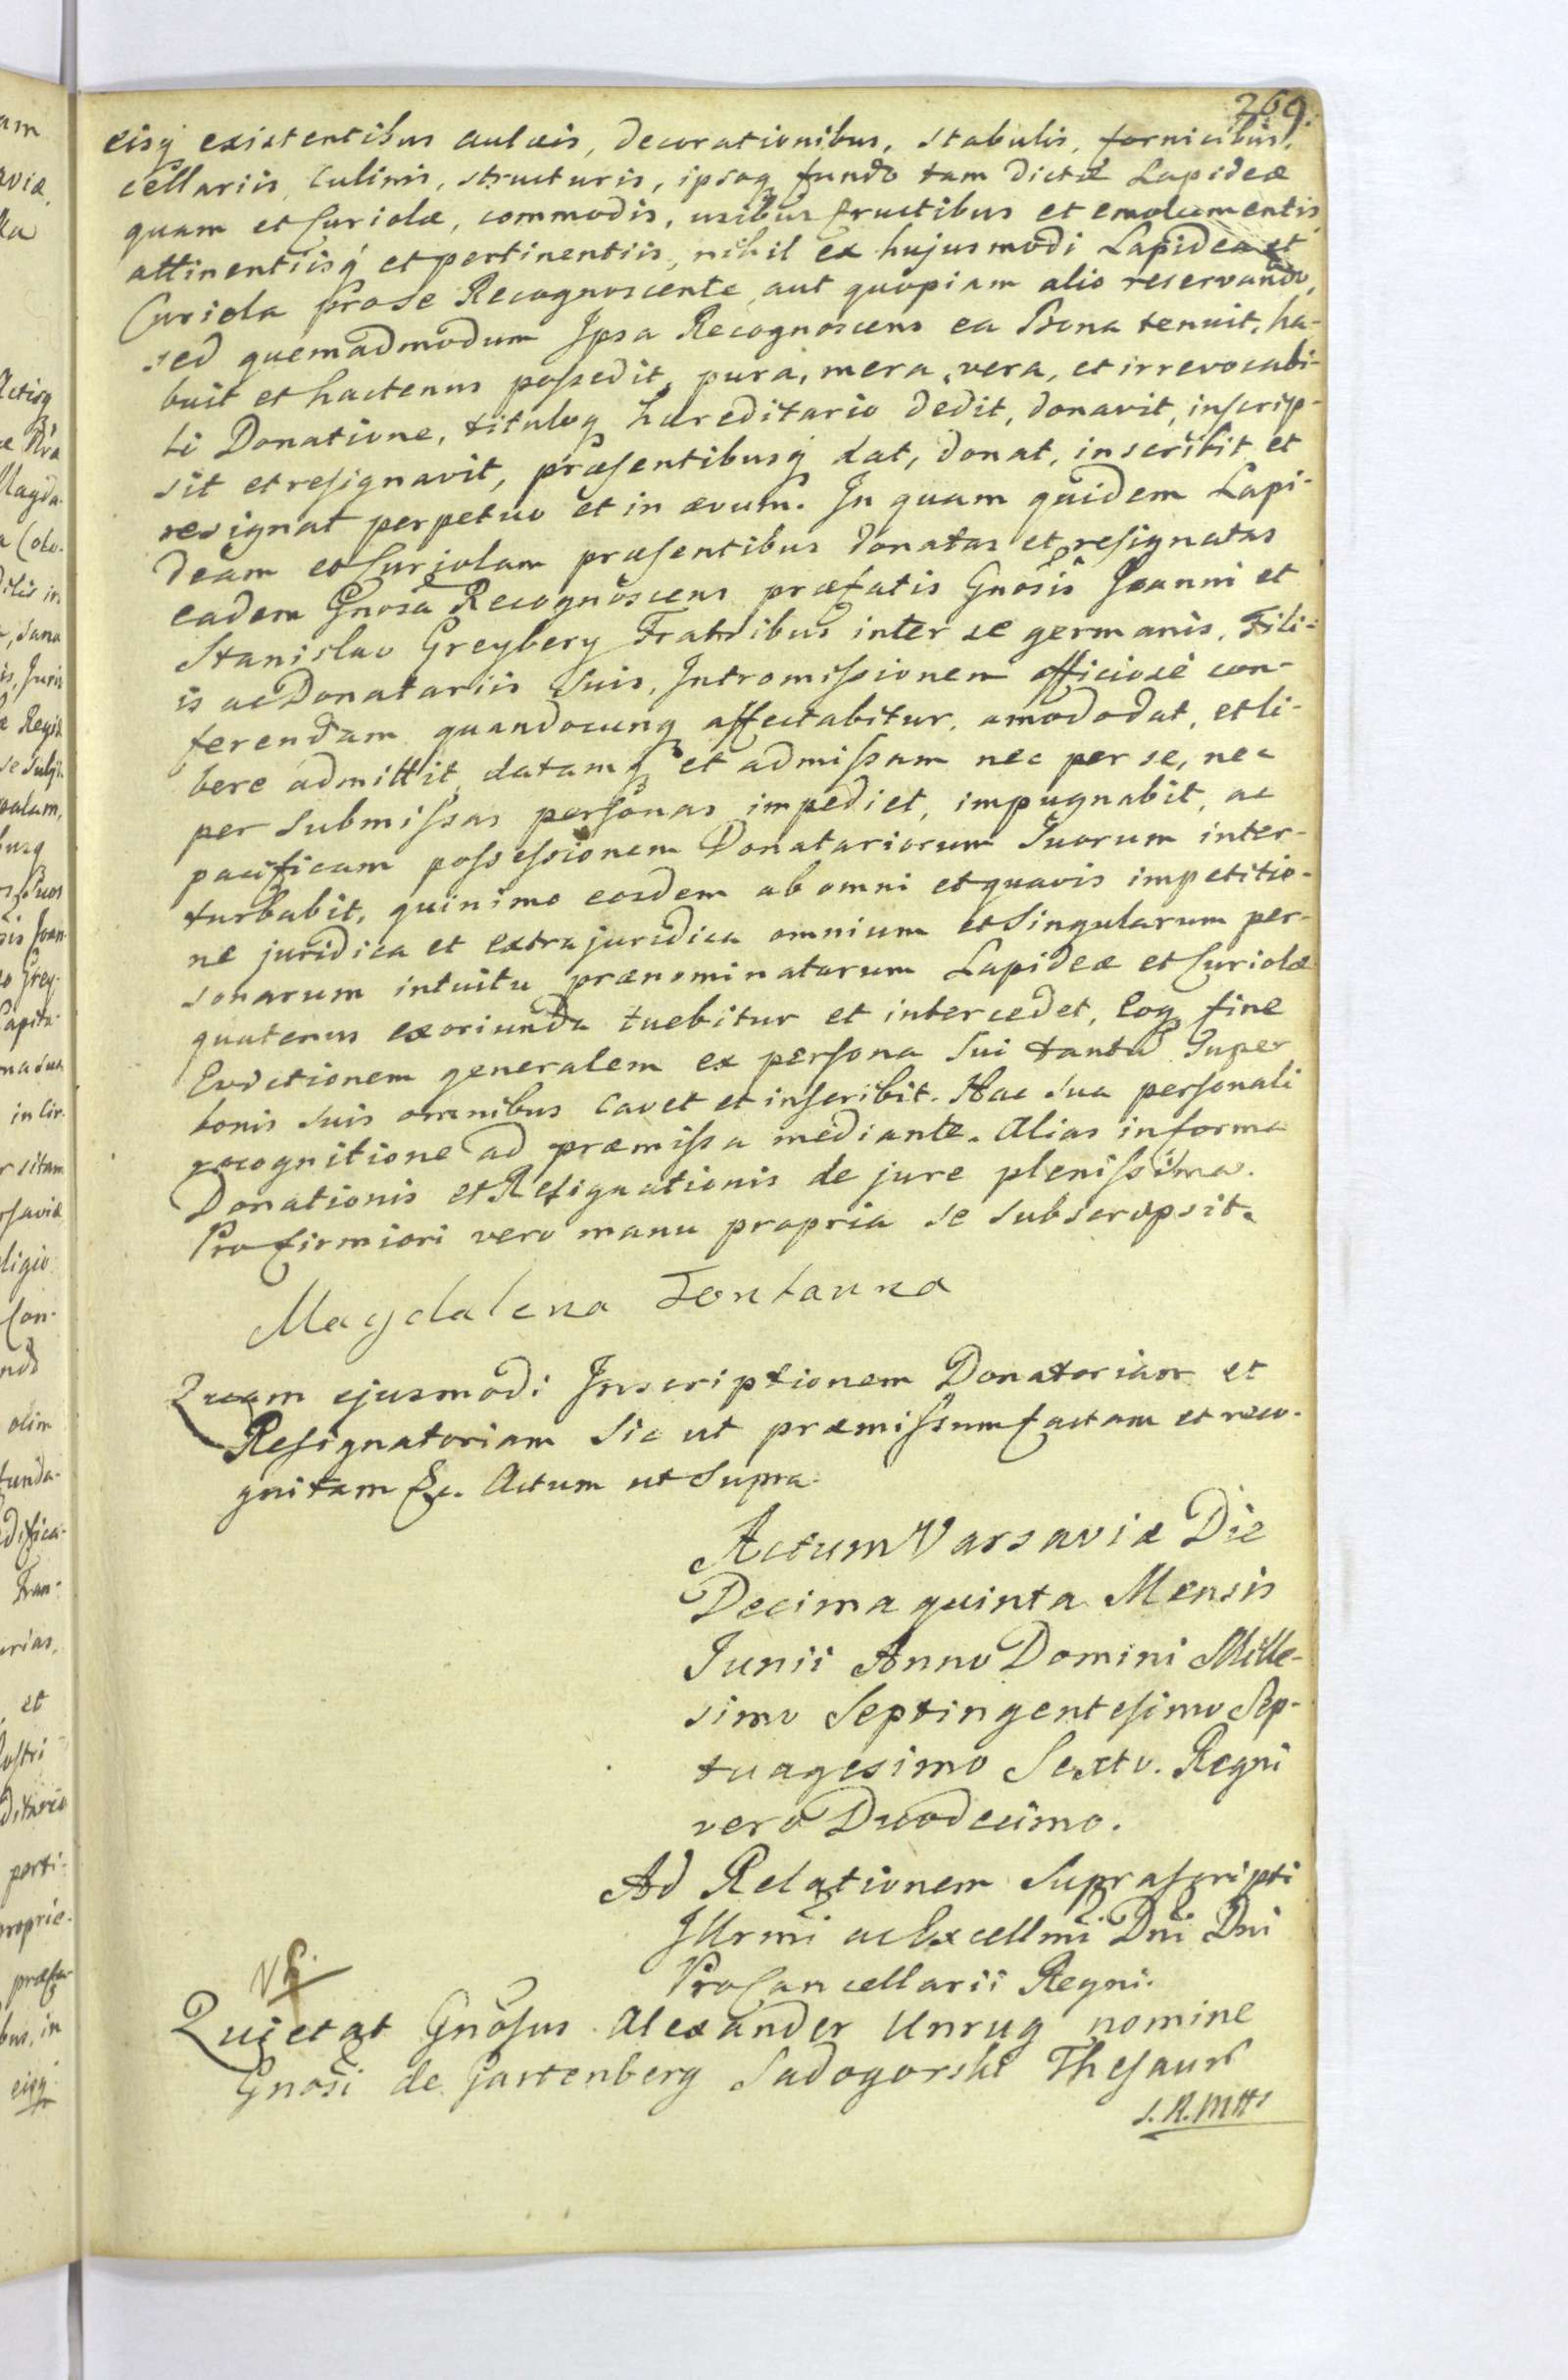 269.
eisq existentibus aulæis, decorationibus, stabulis, fornicibus,
cellariis, culinis, structuris, ipsoq fundo tam dictæ Lapideæ
quam et Curiolæ, commodis, usibus fructibus et emolumentis
attinentiisq et pertinentiis, nihil ex hujusmodi Lapidea et
Curiola pro se Recognoscente aut quopiam alio reservando,
sed quemadmodum Ipsa Recognoscens ea Bona tenuit, ha-
buit et hactenus possedit, pura, mera, vera, et irrevocabi-
li Donatione, tituloq hæreditario dedit, donavit, inscrip-
sit et resignavit, præsentibusq dat, donat, inscribit et
resignat perpetuo et in ævum. In quam quidem Lapi-
deam et Curiolam præsentibus donatas et resignatas
eadem Gnosa Recognoscens præfatis Gnosis Joanni et
Stanislao Greyberg Fratribus inter se germanis, Fili-
is ac Donatariis suis, Intromissionem officiose con-
ferendam quandocunq affectabitur, amodo dat, et li-
bere admittit, datamq et admissam nec per se, nec
per submissas personas impediet, impugnabit, ac
pacificam possessionem Donatariorum Suorum inter-
turbabit, quinimo eosdem ab omni et quavis impetitio-
ne juridica et extrajuridica omnium et Singularum per-
sonarum intuitu prænominatarum Lapideæ et Curiolæ
quatenus exoriunda tuebitur et intercedet, Eoq fine
Evictionem generalem ex persona Sui tantu Super
bonis suis omnibus cavet et inscribit. Hac sua personali
recognitione ad præmissa mediante. Alias in forma
Donationis et Resignationis de jure plenissima.
Pro firmiori vero manu propria se subscripsit.
Magdalena Fontanna
Quam ejusmodi Inscriptionem Donatoriam et
Resignatoriam Sic ut præmissum factam et reco-
gnitam &c. Actum ut Supra.
Actum Varsaviæ Die
Decima quinta Mensis
Junii Anno Domini Mille-
simo Septingentesimo Sep-
tuagesimo Sexto. Regni
vero Duodecimo.
Ad Relationem Suprascripti
Illrmi ac Excellmi Dni Dni
ProCancellarii Regni.
Quietat Gnosus Alexander Unrug nomine
Gnosi de Gartenberg Sadogorski Thesaur
S. R. Mtts